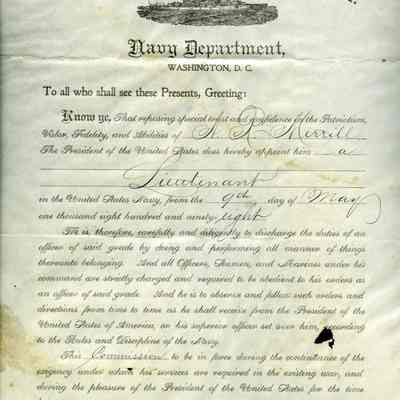 Navy Department,
WASHINGTON, D. C.
To all who shall see these Presents, Greeting:
Know ye, That reposing special trust and confidence in the Patriotism,
Valor, Fidelity, and Abilities of N. A. Merrill
The President of the United States does hereby appoint him a
Lieutenant
in the United States Navy, from the 9th day of May
one thousand eight hundred and ninety-eight
He is therefore, carefully and diligently to discharge the duties of an
officer of said grade by doing and performing all manner of things
thereunto belonging. And all Officers, Seamen, and Marines under his
command are strictly charged and required to be obedient to his orders as
an officer of said grade. And he is to observe and follow such orders and
directions from time to time as he shall receive from the President of the
United States of America, or his superior officer set over him, according
to the Rules and Discipline of the Navy.
This Commission to be in force during the continuance of the
exigency under which his services are required in the existing war, and
during the pleasure of the President of the United States for the time